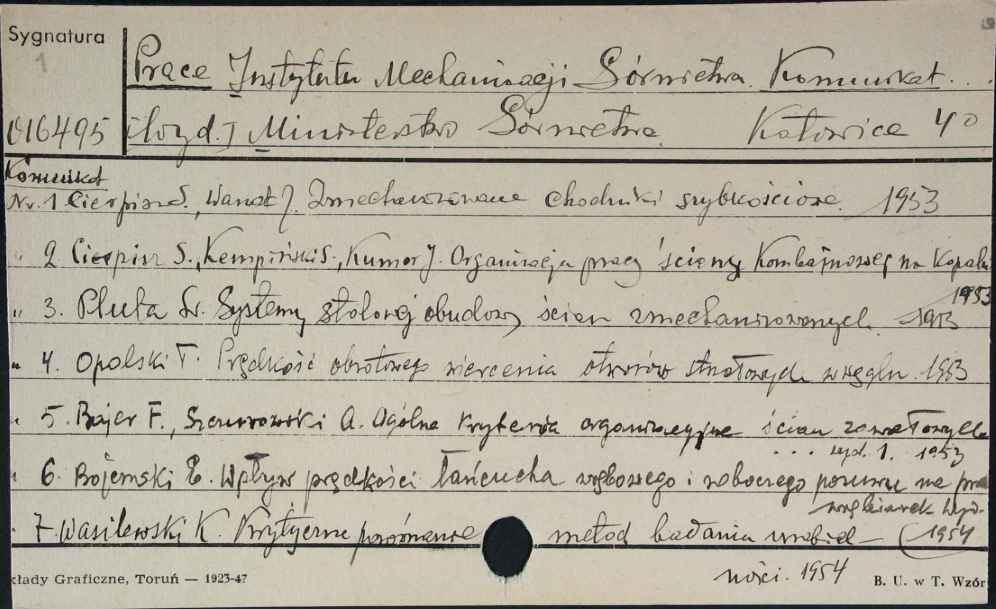 Sygnatura
1
Prace Instytutu Mechanizacji Górnictwa. Komunikat...
016495 Wyd. Ministerstwo Górnictwa. Katowice 40
Komunikat
Nr. 1 Cierpisz S., Wanat J. Zmechanizowane chodniki szybkościowe. 1953
" 2 Cierpisz S., Kempiński S., Kumor J. Organizacja pracy ściany kombajnowej na Kopalni
1953
" 3. Pluta Sr. Systemy stalowej obudowy ścian zmechanizowanych. 1953
" 4. Opolski T. Prędkość obrotowego wiercenia otworów strzałowych w węglu. 1953
" 5. Bajer F., Szczurowski A. Ogólne kryteria organizacyjne ścian zawałowych
... wyd. 1. 1953
" 6. Bojemski E. Wpływ prędkości łańcucha wrębowego i roboczego posuwu na
węgliarek Wyd.
" 7. Wasilewski K. Krytyczne porównanie metod badania urabial- (1954
ności. 1954
kłady Graficzne, Toruń — 1923-47
B. U. w T. Wzór